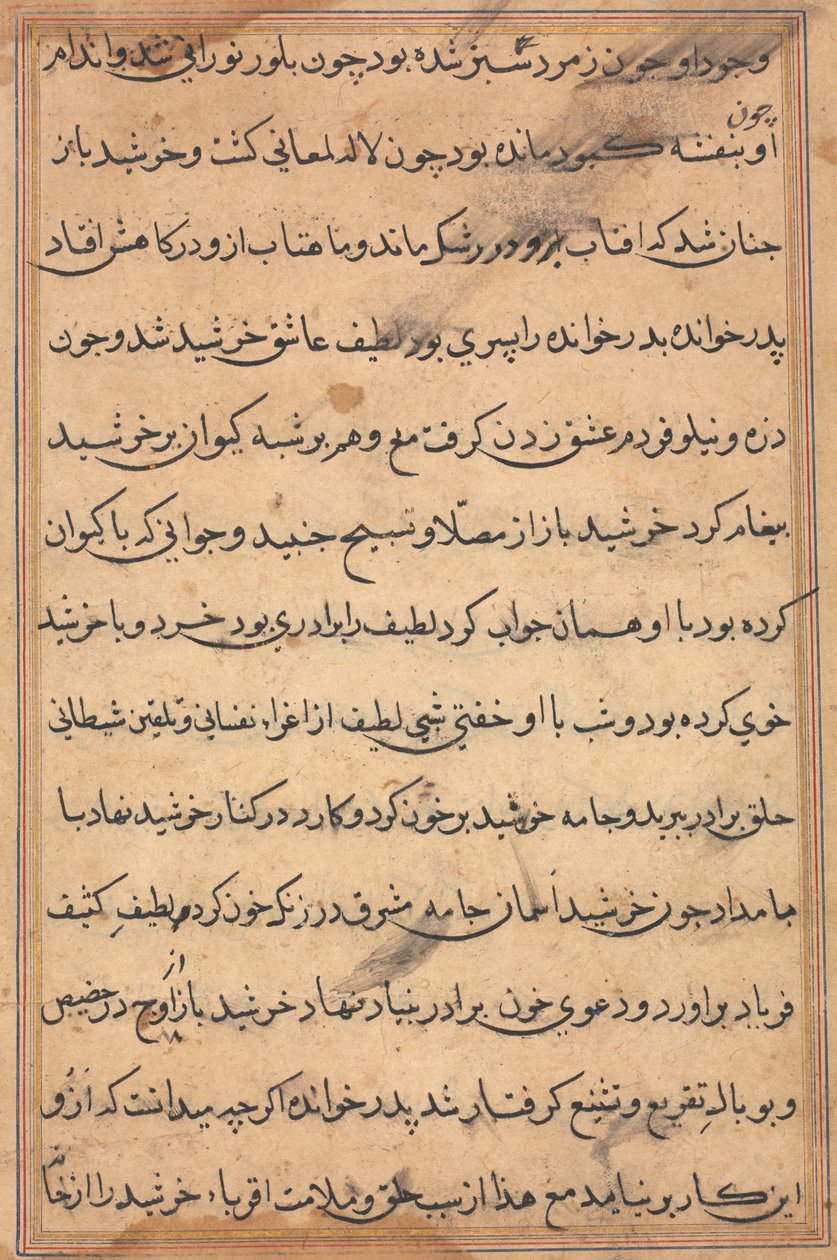 وجود او جون زمرد سبز شده بود چون بلور نورانی شد و اندام
چون
او بنفشه کبود مانده بود چون لاله لمعانی کشت و خرشید باز
جنان شد که افتاب برو در رشک ماند و ماهتاب ازو در کاهش افتاد
پدر خوانده بدر خوانده را پسری بود لطیف عاشق خرشید شد و جون
ذره و نیلوفر دم عشق زدن کرفت مع وهم بر شبه کیوان بر خرشید
بیغام کرد خرشید باز از مصلّا و تسبیح جنبید و جوابی که با کیوان
کرده بود با او همان جواب کرد لطیف را برادری بود خرد و با خرشید
خوی کرده بود و شب با او خفتی شبی لطیف از اغراء نفسانی و تلقین شیطانی
حلق برادر ببرید و جامه خرشید بر خون کرد و کارد در کنار خرشید نهاد با
بامداد جون خرشید آسمان جامه مشرق در زنک خون کرد لطیفِ کثیف
از
فریاد براورد و دعوی خون برادر بنیاد نهاد خرشید باز اوج در حضیض
و بو بالهِ تقریع و تشنیع کرفتار شد پدر خوانده اکرچه میدانست که ازو
این کار بر نیاید مع هذا از سبب حلق و ملامت اقرباء خرشید را از خانه